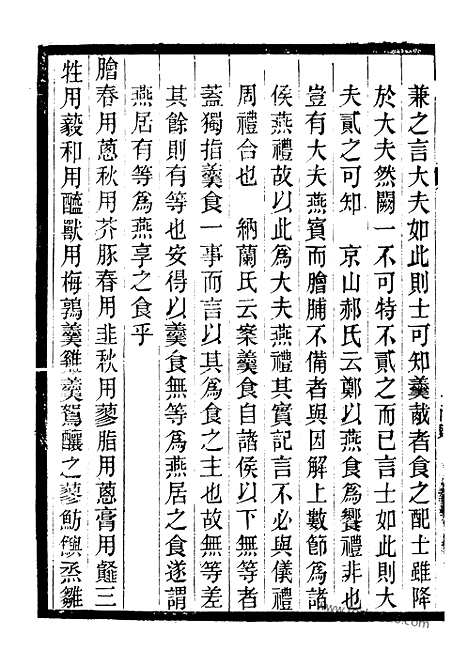 兼之言大夫如此則士可知羹胾者食之配士雖降
於大夫然闕一不可特不貳之而已言士如此則大
夫貳之可知　京山郝氏云鄭以燕食為饗禮非也
豈有大夫燕賓而膾脯不備者與因解上數節為諸
侯燕禮故以此為大夫燕禮其實記言不必與儀禮
周禮合也　納蘭氏云案羹食自諸侯以下無等者
蓋獨指羹食一事而言以其為食之主也故無等差
其餘則有等也安得以羹食無等為燕居之食遂謂
燕居有等為燕享之食乎
膾春用蔥秋用芥豚春用韭秋用蓼脂用蔥膏用薤三
牲用藙和用醯獸用梅鶉羹雞羹鴽釀之蓼魴鱮烝雛